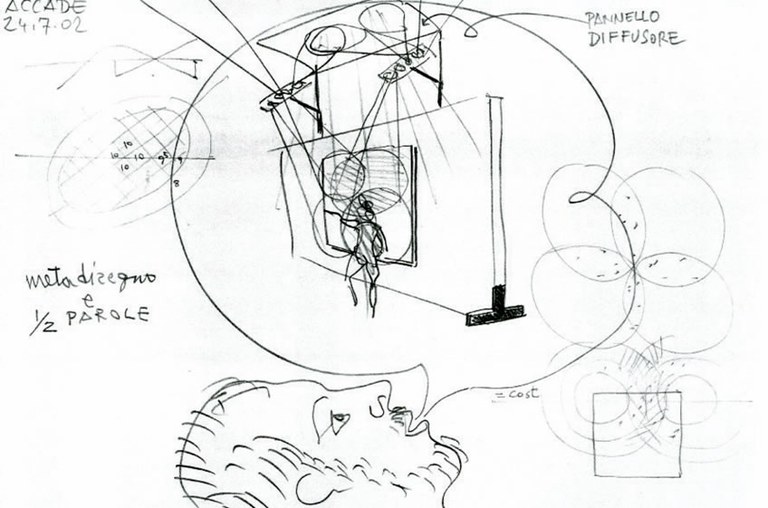 ACCADE
24.7.02
PANNELLO
DIFFUSORE
10
10 10 9.5 9
10
8
metadisegno
e
1/2 PAROLE
= cost